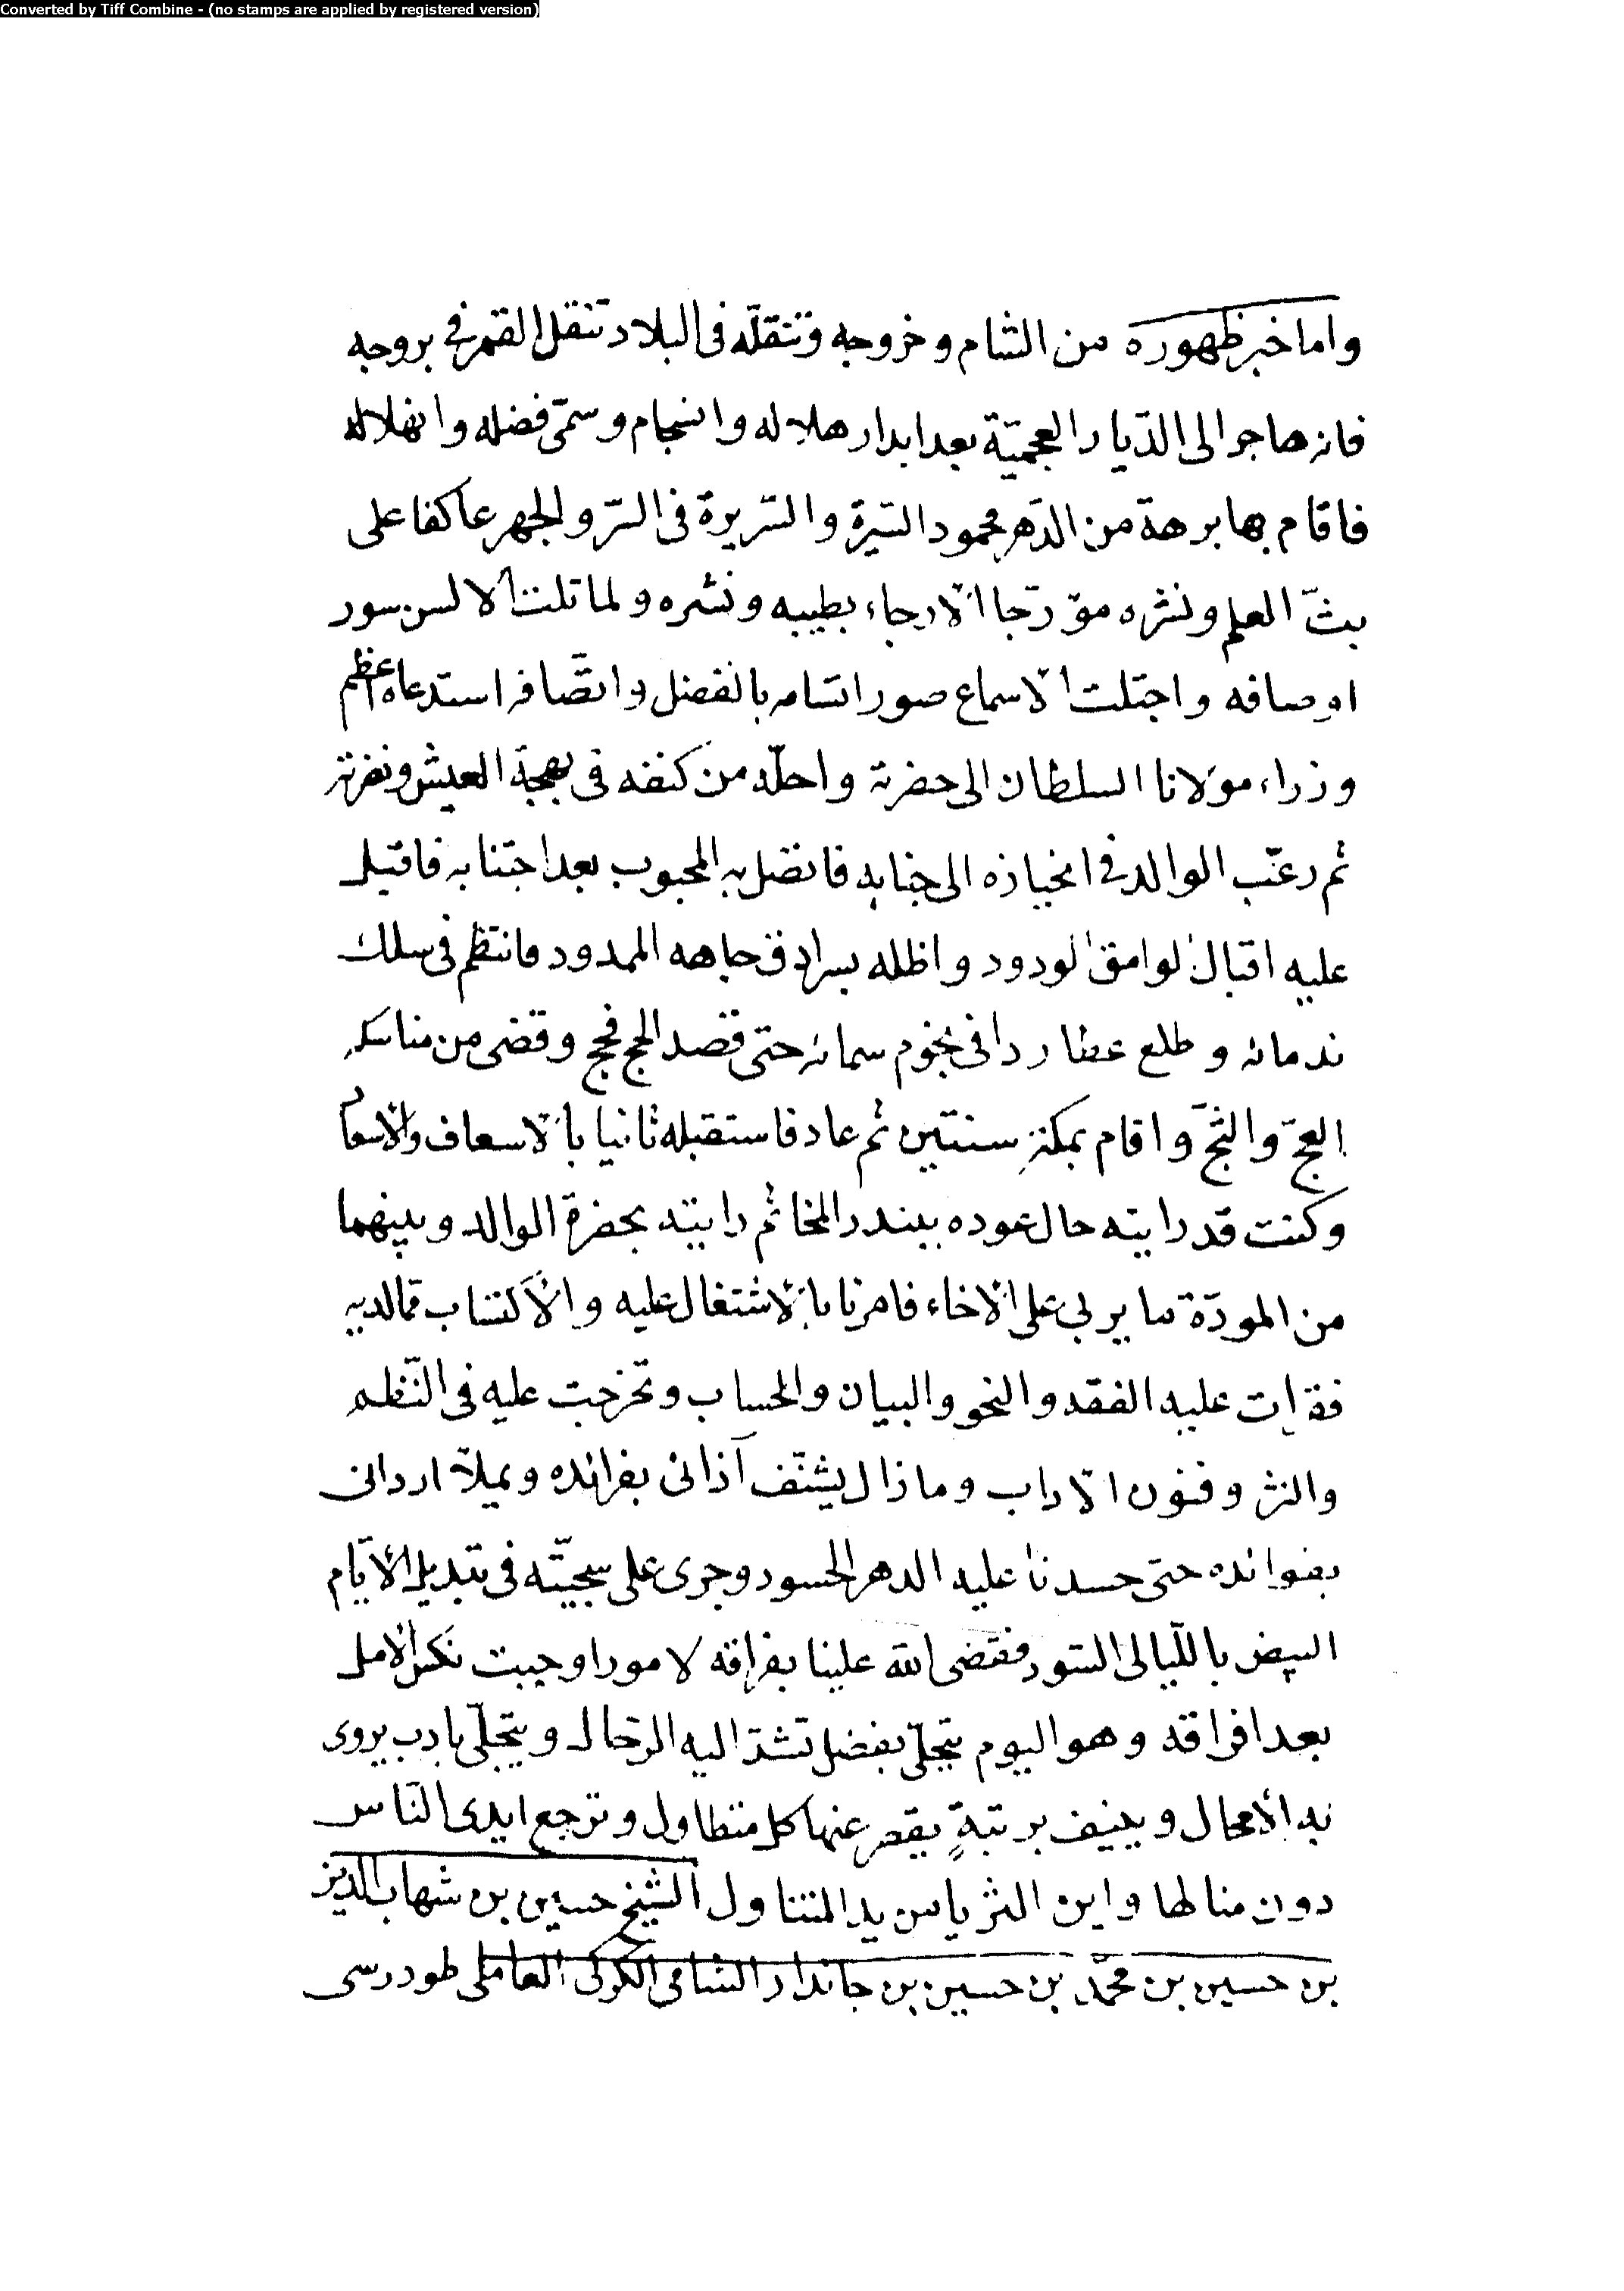 Converted by Tiff Combine - (no stamps are applied by registered version)
واما خبر ظهوره من الشام وخروجه وتنقلّه فى البلاد تنقل القمر فى بروجه
فانه هاجر الى الدّيار العجميّة بعد ابدار هلاله وانسجام وسمىّ فضله وانهلاله
فاقام بها برهة من الدّهر محمود السّيرة والسّريرة فى السرّ والجهر عاكفا على
بثّ العلم ونشره مؤرّجا الارجاء بطيبه ونشره ولما تلت الالسن سور
اوصافه واجتلت الاسماع صور اتسامه بالفضل واتّصافه استدعاه اعظم
وزراء مولانا السلطان الى حضرته واحلّه من كنفه فى بهجة العيش ونضرته
ثم رغّب الوالد فى انحيازه الى جنابه فاتصل به المحبوب بعد اجتنابه فاقبل
عليه اقبال الوامق الودود واظله بسرادق جاهه الممدود فانتظم فى سلك
ندمائه وطلع عطاردا فى نجوم سمائه حتى قصد الحج فحج وقضى من مناسكه
العجّ والثجّ واقام بمكة سنتين ثم عاد فاستقبله ثانيا بالاسعاف والاسعاد
وكنت قد رايته حال عوده ببندر المخا ثم رايته بحضرة الوالد وبينهما
من المودّة ما يربى على الاخاء فامرنا بالاشتغال عليه والاكتساب مما لديه
فقرات عليه الفقه والنحو والبيان والحساب وتخرجت عليه فى النّظم
والنثر وفنون الاداب وما زال يشنّف آذانى بفرائده ويملأ اردانى
بفوائده حتى حسدنا عليه الدهر الحسود وجرى على سجيّته فى تبديل الايّام
البيض بالليّالى السّود فقضى الله علينا بفراقه لامور اوجبت نكس الامل
بعد افراقه وهو اليوم يتحلّى بفضل تشدّ اليه الرّحال ويتجلّى بادب يروى
به الامحال وينيف برتبةٍ يقصر عنها كل متطاول وترجع ايدى النّاس
دون منالها واين الثريا من يد المتناول الشيخ حسين بن شهاب الدين
بن حسين بن محمّد بن حسين بن جاندار الشامى الكركى العاملى طود رسى